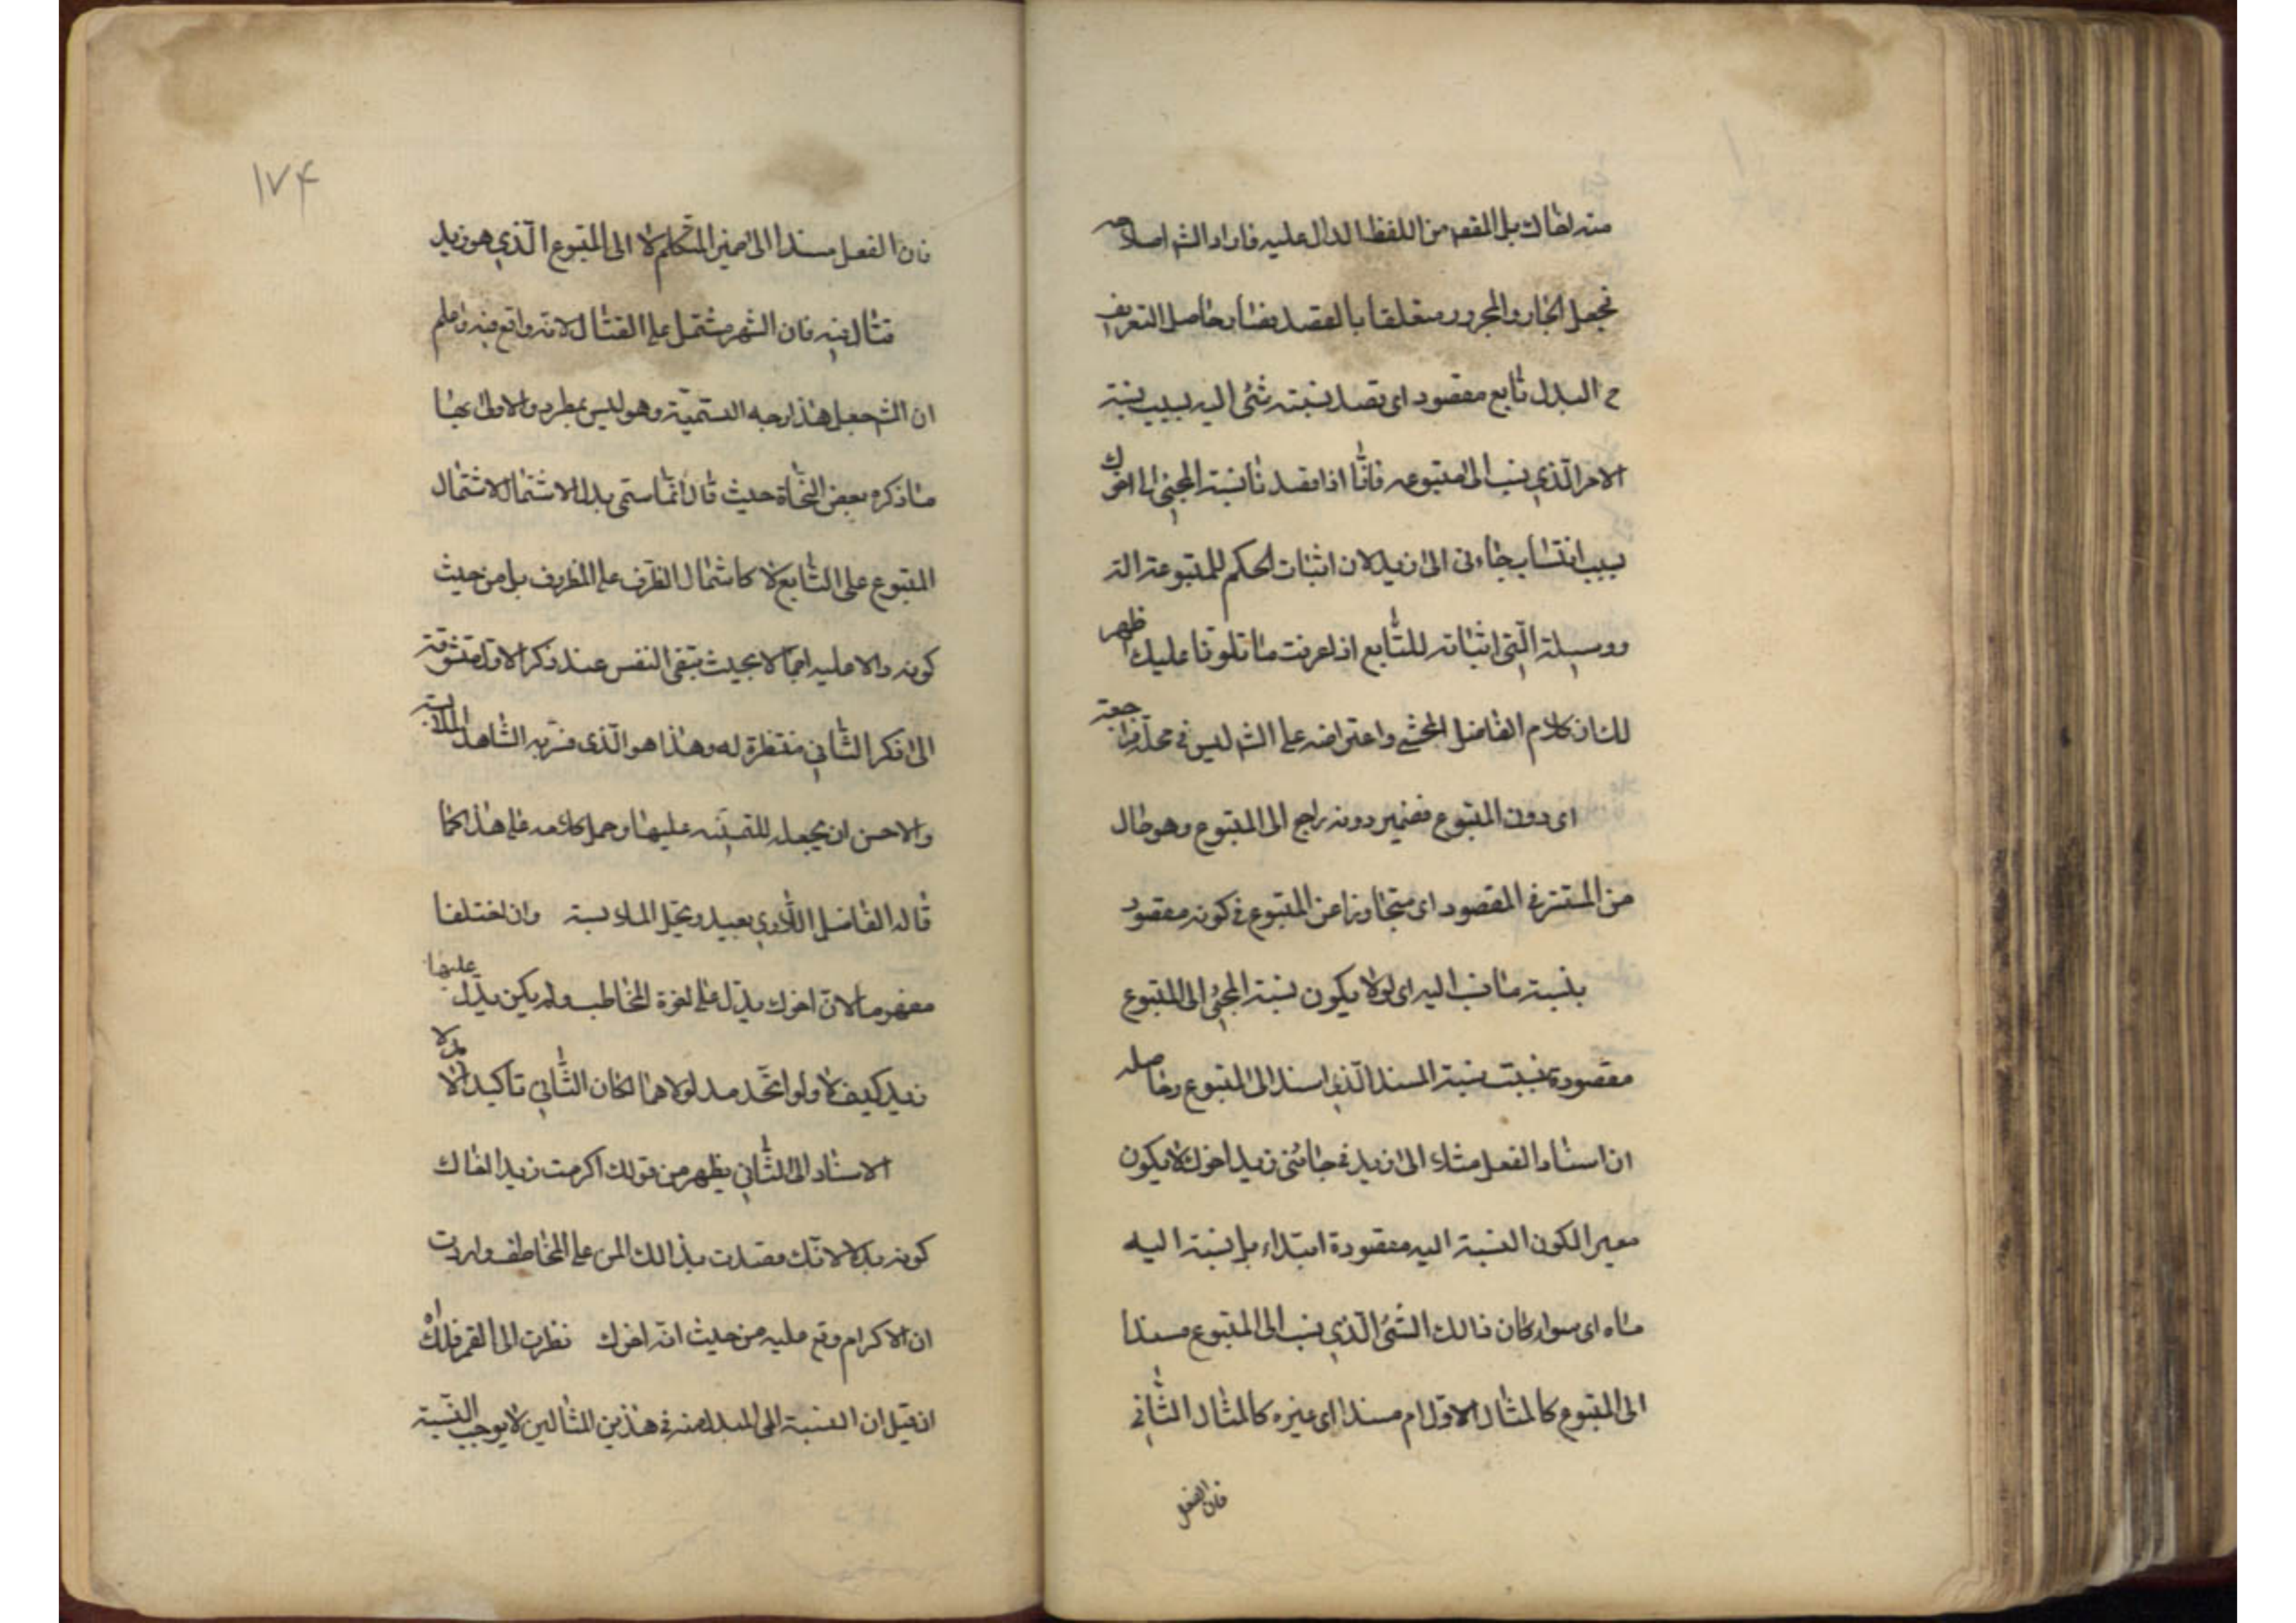 منه لقال بل المقصود من اللفظ الدال عليه فاراد الشه اصلاحه
فجعل الجار والمجرور متعلقا بالقصد فصار حاصل التعريف
ح البدل تابع مقصود اى قصد نسبته شئ اليه بسبب نسبة
الامر الّذي نسب الى متبوعه فانّا اذا قصدنا نسبة المجئ الى اخوك
بسبب انتساب جاءنى الى زيد لان اثبات الحكم للمتبوع
ووسيلة الّتى اثباته للتّابع اذا عرفت ما تلونا عليك ظهر
لك ان كلام الفاضل المحشى واعتراضه على الشه ليس فى محلّه
اى دون المتبوع فضمير دونه راجع الى المتبوع وهو حال
من المستتر فى المقصود اى متجاوزا عن المتبوع فى كونه مقصود
بنسبة ما نسب اليه اى لولا يكون نسبة المجئ الى المتبوع
مقصودة بنسبت نسبة المسند الّذي اسند الى المتبوع وحاصله
ان اسناد الفعل مثلا الى زيد فى جائنى زيد اخوك لا يكون
الكون النسبة اليه مقصودة ابتداء بل نسبة اليه
ماه اى سواء كان ذالك الشئ الّذي نسب الى المتبوع مسندا
الى المتبوع كالمثال الاول ام مسندا اى غيره كالمثال الثّانى
فان الفعل
١٧۴
فان الفعل مسندا الى ضمير المتكلم لا الى المتبوع الّذي هو زيد
قتال فيه فان الشهر مشتمل على القتال لانه واقع فيه واعلم
ان الشه جعل هذا وجه التسميّة وهو ليس بمطرد والاولى بها
ما ذكره بعض النّحاة حيث قال انّما سمّى بدل الاشتمال لاشتمال
المتبوع على التّابع لا كاشتمال الظّرف على المظروف بل من حيث
كونه دالا عليه اجمالا بحيث تبقى النفس عند ذكر الاول متشوقة
الى ذكر الثّانى منتظرة له وهذا هو الّذى
والاحسن ان يجعله للتبنيه عليها وحمل كلامه على هذا كما
قاله الفاضل اللّارى بعيد ويخيل الملابسة وان اختلفا
مفهوما لان اخوك يدّل على اخوة المخاطب ولم يكن يدّل عليها
زيد كيف لا ولو اتّحد مدلولاهما لكان الثّانى تأكيدا لا بدلا
الاسناد الى الثّانى يظهر من قولك اكرمت زيدا اخاك
كونه بدلا لانّك قصدت بذالك المن على المخاطب واردت
ان الاكرام وقع عليه من حيث انّه اخوك نظرت الى القمر فلكه
ان قيل ان النسبة الى المبدل منه فى هذين المثالين لا يوجب النسبة